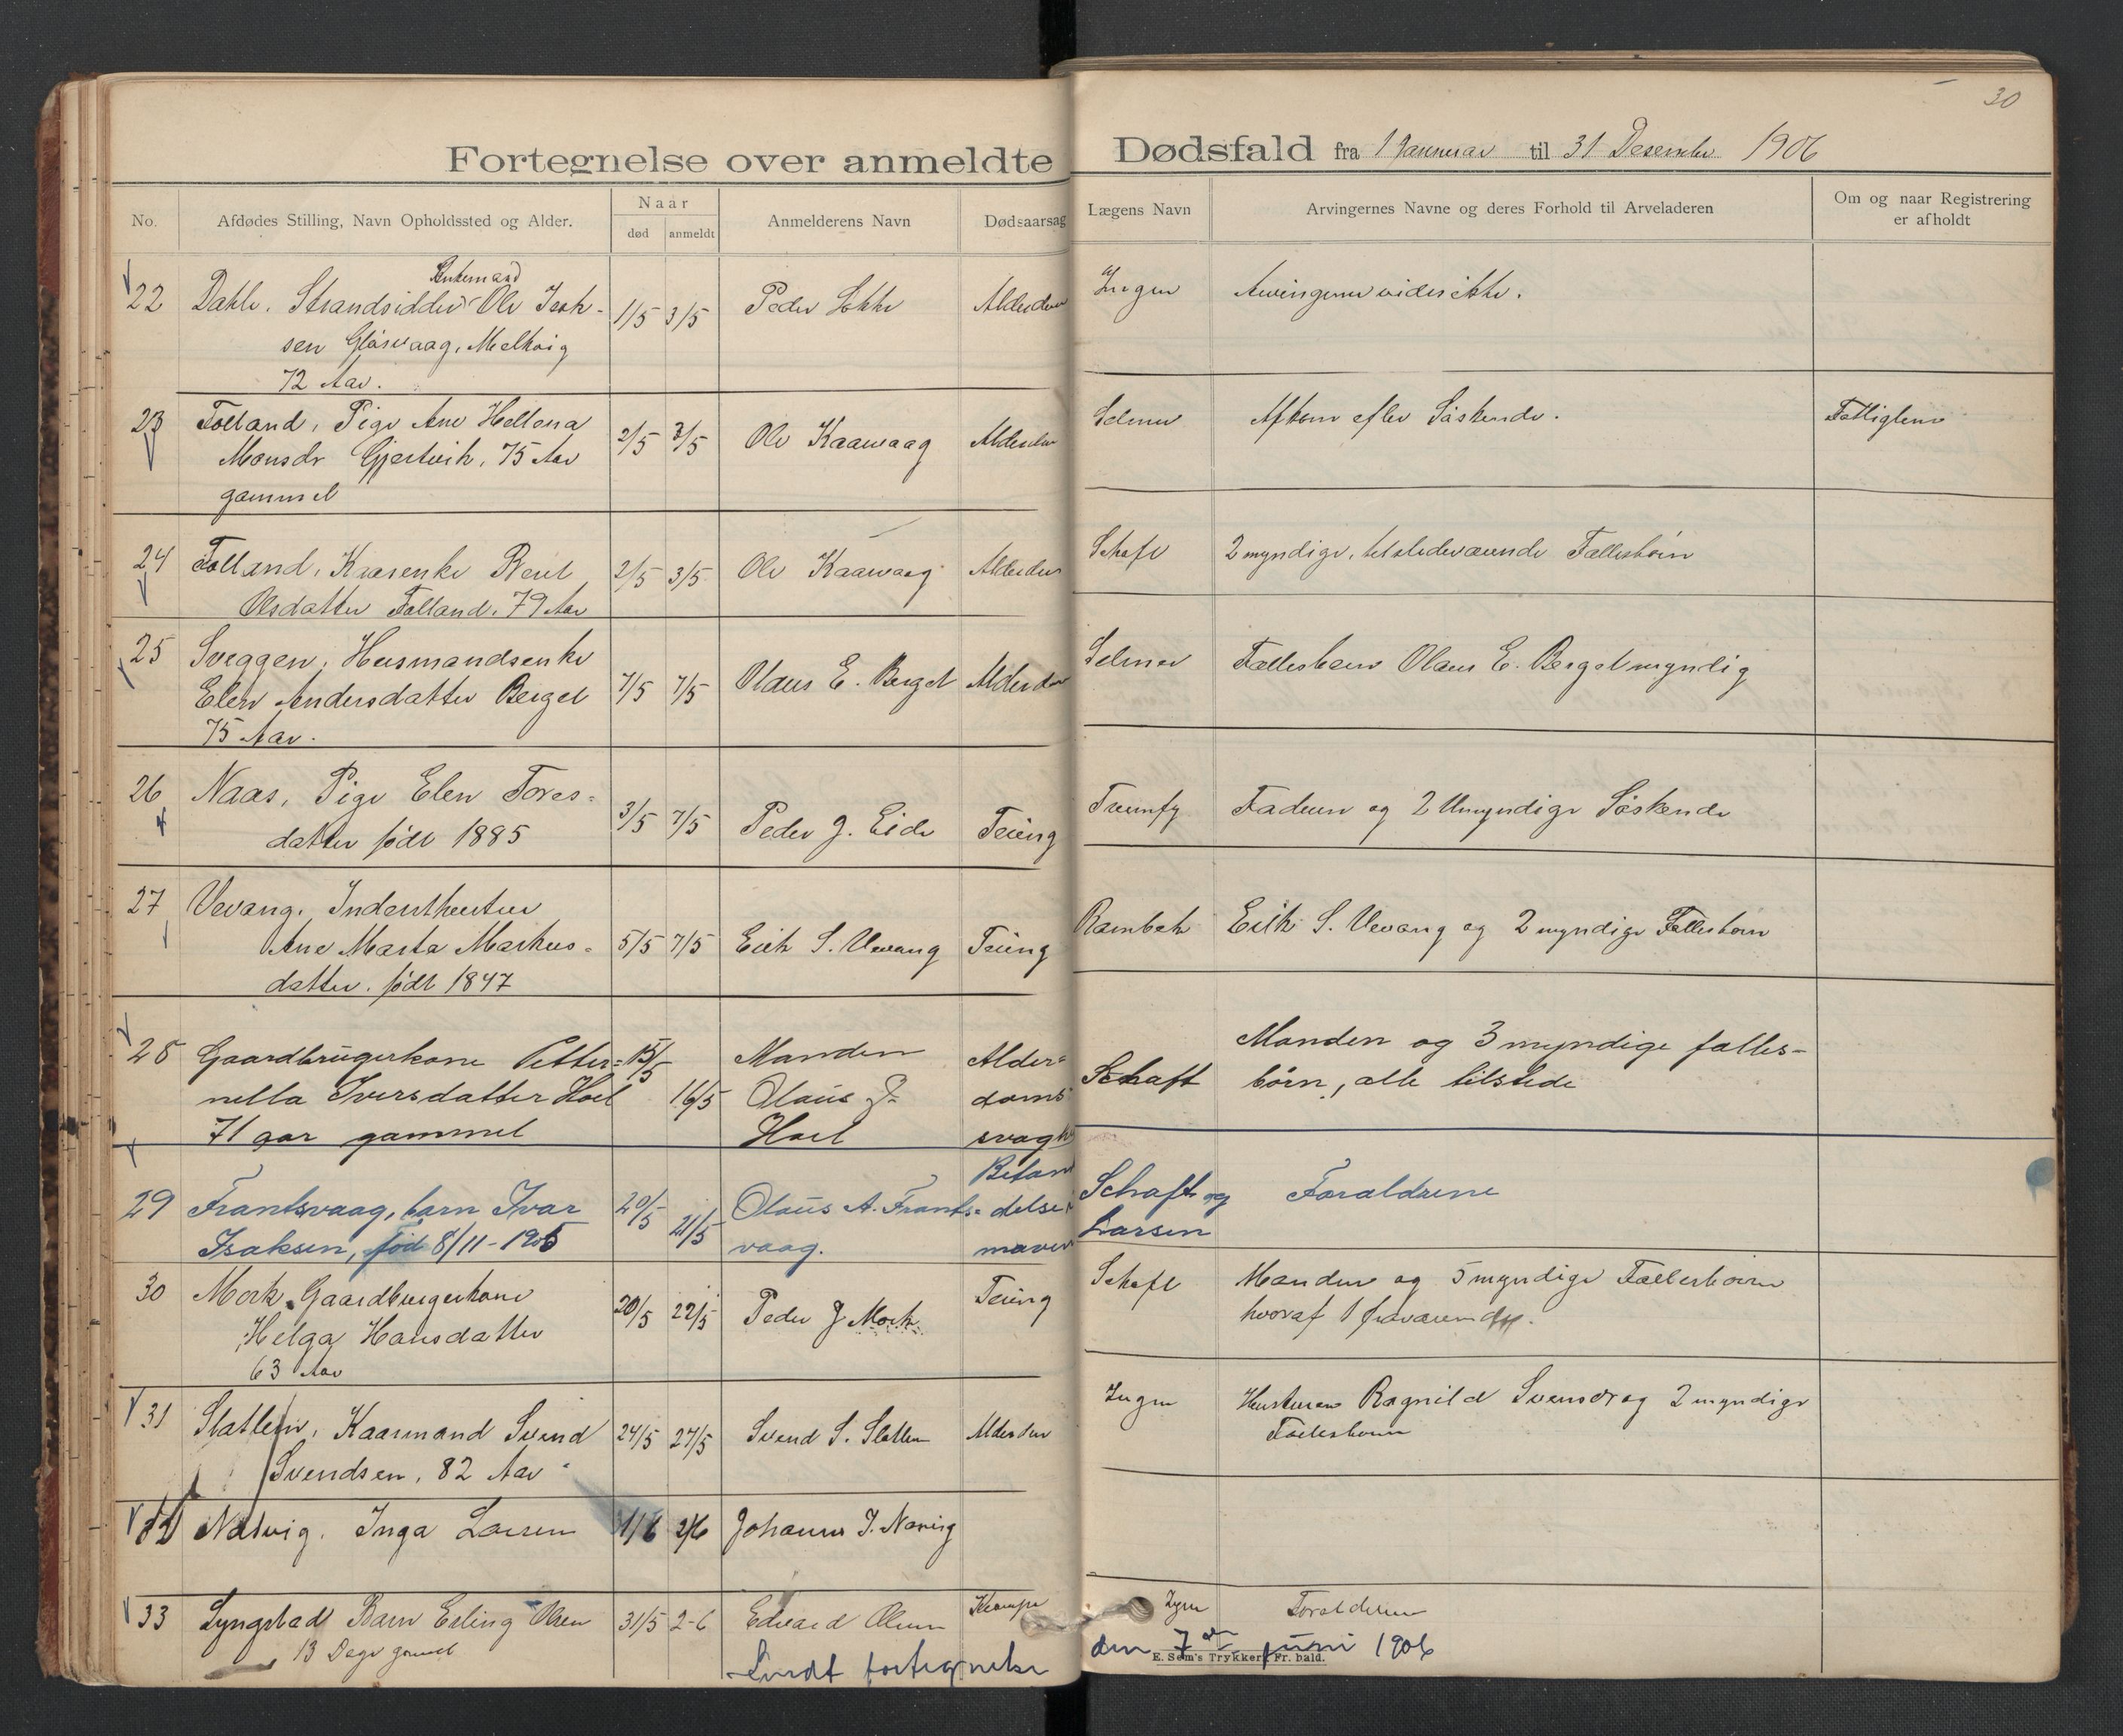 30
Fortegnelse over anmeldte Dødsfald fra 1 Januar til 31 Desember 1906
No.
Afdødes Stilling, Navn Opholdssted og Alder.
Naar
død
anmeldt
Anmelderens Navn
Dødsaarsag
Lægens Navn
Arvingernes Navne og deres Forhold til Arveladeren
Om og naar Registrering
er afholdt
Enkemand
22 Dahle. Strandsidder Ole Isak- 1/5 3/5 Peder Alderdom Ingen Arvingerne vides ikke.
sen Glasvaag, Melkvig
72 Aar.
23 Folland, Pige Ane Hellena 2/5 3/5 Ole Kaarvaag Alderdom Selmer Afkom efter Söskende. Fattiglem
Monsdr Gjertvik, 75 Aar
gammel
24 Folland, Kaarenke Beret 2/5 3/5 Ole Kaarvaag Alderdom Schaft 2 myndige, tilstedeværende Fællesbörn
Olsdatter Folland. 79 Aar
25 Sveggen, Husmandsenke 7/5 7/5 Olaus E. Berget Alderdom Selmer Fællesbarn Olaus E. Berget myndig
Elen Andersdatter Berget
75 Aar.
26 Naas, Pige Elen Tores- 3/5 7/5 Peder J. Eide Tæring Trumfy Faderen og 2 Umyndige Söskende
datter født 1885
27 Vevang. Inderstkeutur 5/5 7/5 Erik S. Vevang Tæring Rambek Erik S. Vevang og 2 myndige Fællesbörn
Ane Marta Markus-
datter. født 1847
28 Gaardbrugerkone Petter- 15/5 Manden Alder- Manden og 3 myndige fælles-
nella Iversdatter Hoel 16/5 Olaus doms Schaft börn, alle tilstede
71 aar gammel Hoel svagh
29 Frantsvaag, barn Ivar 20/5 21/5 Olaus A. Frants- delse i Schaft og Forældrene
Isaksen, fød 8/11-1905 vaag. maven Larsen
30 Mork Gaardbrugerkone 20/5 22/5 Peder J Mork Tæring Schaft Manden og 5 myndige Fællesbörn
Helga Hansdatter hvoraf 1 fraværende.
63 Aar
31 Slatlem, Kaarmand Svend 24/5 27/5 Svend S. Slatlem Alderdom Ingen Hustruen Ragnild Svensdr og 2 myndige
Svendsen, 82 Aar Fællesbörn
32 Nalvig. Inga Larsen 1/6 2/6 Johannes J. Narvig
33 Lyngstad Barn Erling Olsen 31/5 2-6 Edvard Olsen Krampe Ingen Forælderne
13 Dage gamel
Sendt fortegnelse den 7de juni 1906
E. Sem's Trykkeri, Fr. hald.